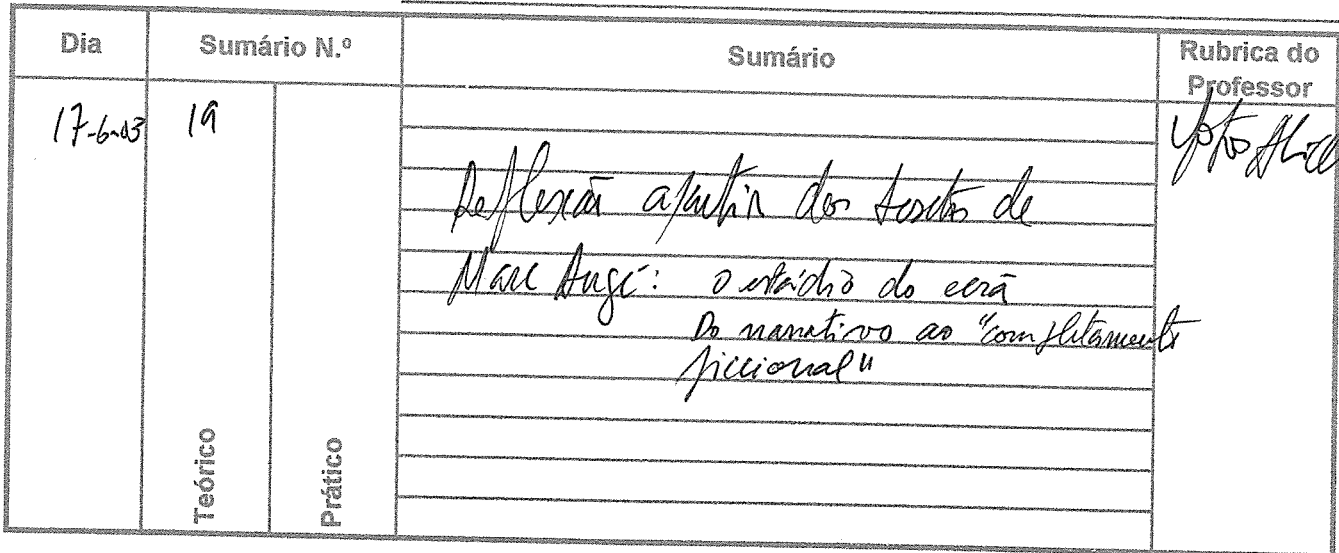 Dia Sumário N.º Sumário Rubrica do Professor
17-6-03 19
Reflexão a partir dos textos de
Marc Augé: o estádio do ecrã
Do narrativo ao "completamente
ficcional"
Teórico Prático